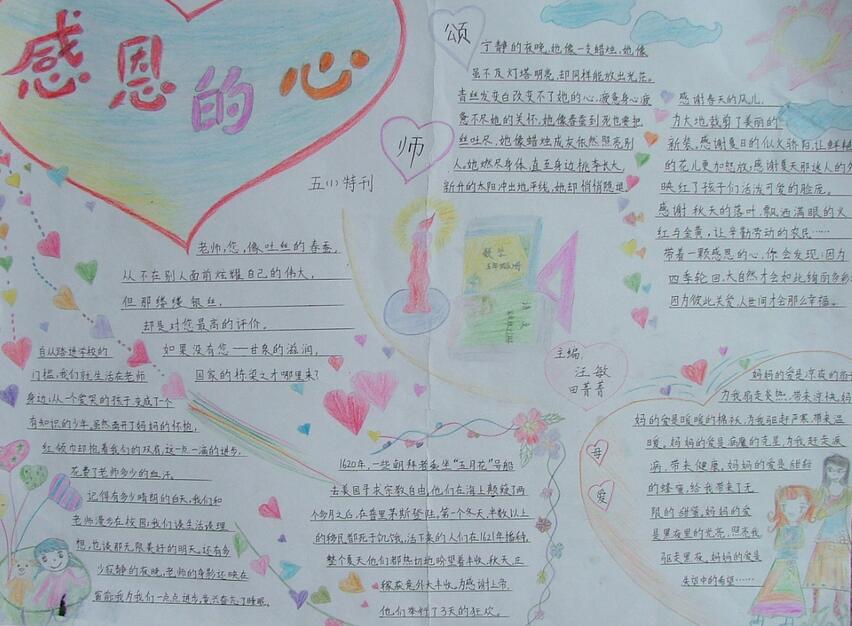 感恩的心
五(1)特刊
颂
师
宁静的夜晚,她像一支蜡烛,她像
虽不及灯塔明亮,却同样能放出光芒。
青丝发变白改变不了她的心,疲惫身心疲
惫不尽她的关怀,她像春蚕到死也要把
丝吐尽,她像蜡烛成灰依然照亮别
人,她燃尽身体,直至身边桃李长大,
新升的太阳冲出地平线,她却悄悄隐退。
感谢春天的风儿,
为大地裁剪了美丽的
新装,感谢夏日的似火骄阳,让鲜艳
的花儿更加怒放,感谢夏天那迷人的夕
映红了孩子们活泼可爱的脸庞。
感谢秋天的落叶,飘洒满眼的火
红与金黄,让辛勤劳动的农民……
带着一颗感恩的心,你会发现:因为
四季轮回,大自然才会如此绚丽多彩
因为彼此关爱,人世间才会那么幸福。
老师,您,像吐丝的春蚕,
从不在别人面前炫耀自己的伟大,
但那缕缕银丝,
却是对您最高的评价。
如果没有您一甘泉的滋润,
国家的栋梁之才哪里来?
数学
语文
主编:
汪敏
田菁菁
自从踏进学校的
门槛,我们就生活在老师
身边,从一个爱哭的孩子变成了一个
有知识的少年,虽然离开了妈妈的怀抱,
红领巾却抱着我们的双肩,这一点一滴的进步,
花费了老师多少的血汗。
记得有多少晴朗的白天,我们和
老师漫步在校园,我们谈生活谈理
想,也谈那无限美好的明天。还有多
少寂静的夜晚,老师的身影还映在
窗前,我为我们一点点进步,高兴奋忘了睡眠。
1620年,一些朝拜者乘坐“五月花”号船
去美国寻求宗教自由,他们在海上颠簸了两
个多月之后,在普里茅斯登陆。第一个冬天,半数以上
的移民都死于饥饿,活下来的人们在1621年播种,
整个夏天他们都热切地盼望着丰收。秋天,庄
稼获意外大丰收,为感谢上帝,
他们举行了3天的狂欢。
母
爱
妈妈的爱是凉夜的扇子
为我扇走炎热,带来凉快,妈
妈的爱是暖暖的棉袄,为我驱赶严寒,带来温
暖,妈妈的爱是病魔的克星,为我赶走疾
病,带来健康,妈妈的爱是甜甜
的蜂蜜,给我带来了无
限的甜蜜,妈妈的爱
是黑夜里的光亮,照亮我
驱走黑夜,妈妈的爱是
失望中的希望……